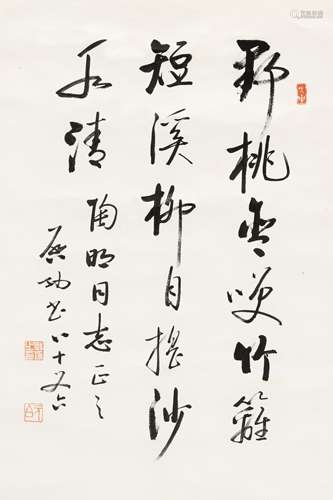 野桃含咲竹籬
短溪柳自搖沙
水清
陶明同志正之
启功书 八十又六